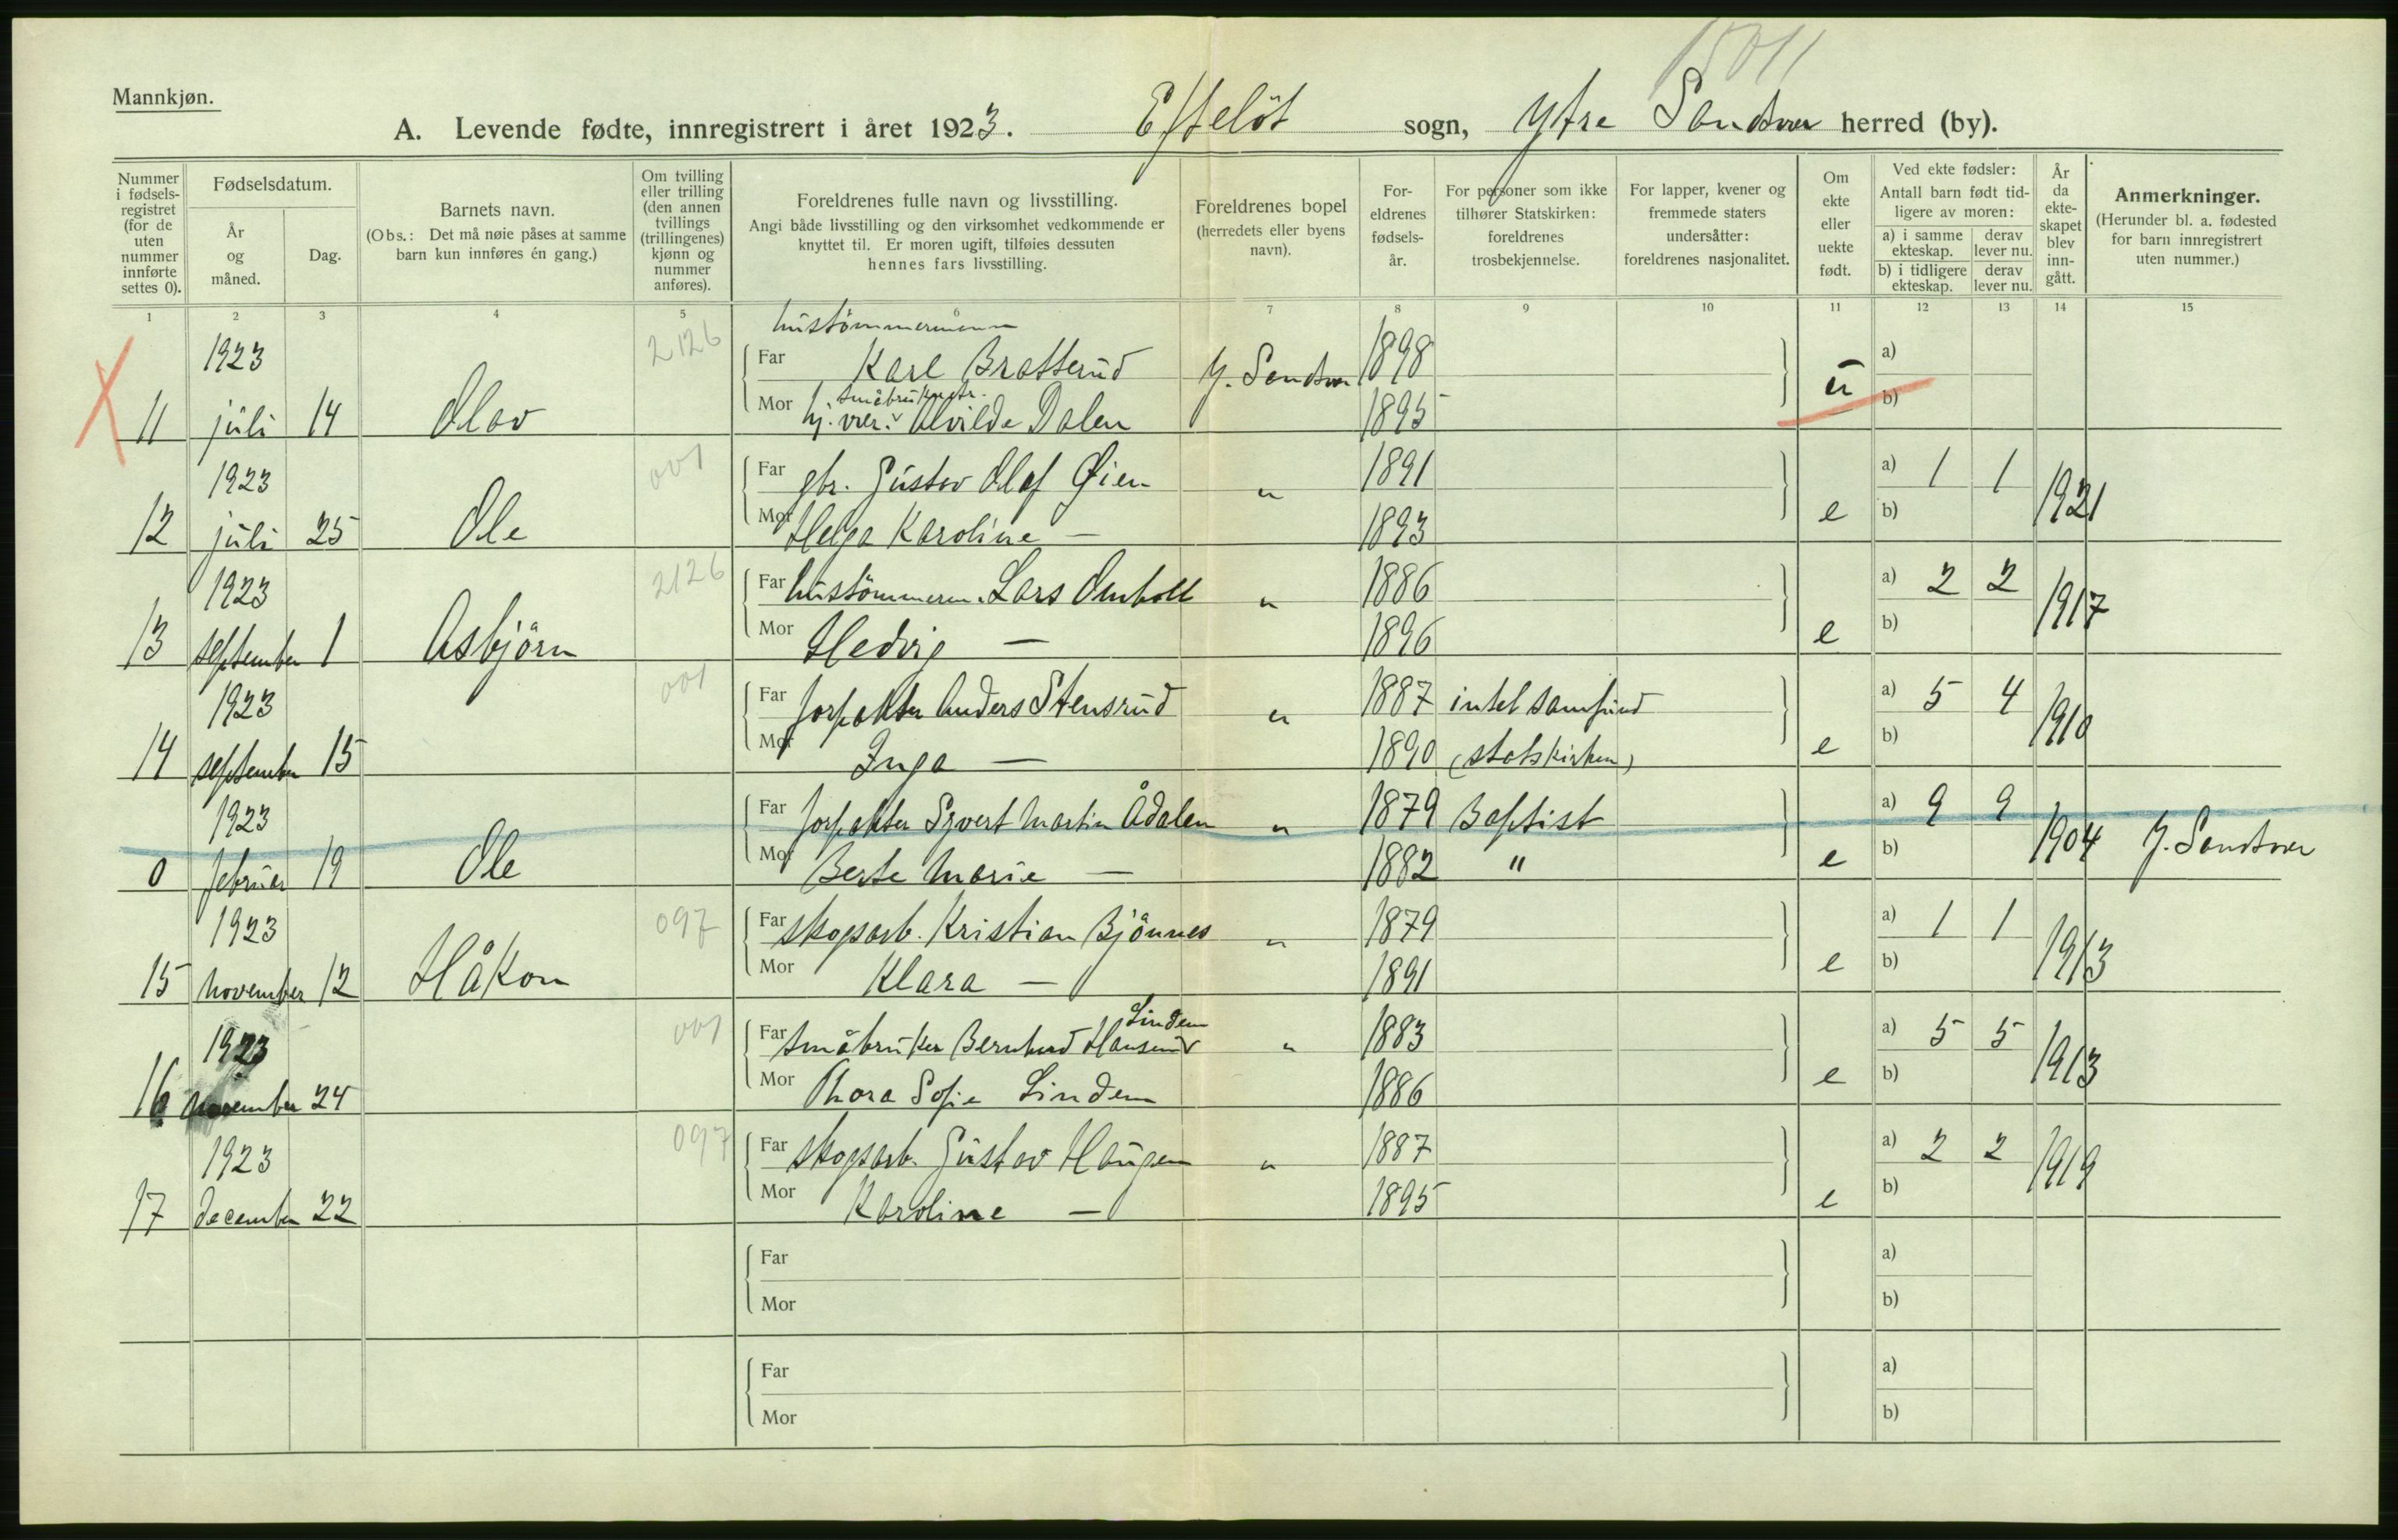 15011
Mannkjøn.
A. Levende fødte, innregistrert i året 1923. Efteløt sogn, Ytre Sandsvær herred (by).
Nummer i fødsels-registret (for de uten nummer innførte settes 0).
Fødselsdatum.
År og måned.
Dag.
Barnets navn.
(Obs.: Det må nøie påses at samme barn kun innføres én gang.)
Om tvilling eller trilling (den annen tvillings (trillingenes) kjønn og nummer anføres).
Foreldrenes fulle navn og livsstilling.
Angi både livsstilling og den virksomhet vedkommende er knyttet til. Er moren ugift, tilføies dessuten hennes fars livsstilling.
Foreldrenes bopel (herredets eller byens navn).
For-eldrenes fødsels-år.
For personer som ikke tilhører Statskirken: foreldrenes trosbekjennelse.
For lapper, kvener og fremmede staters undersåtter: foreldrenes nasjonalitet.
Om ekte eller uekte født.
Ved ekte fødsler: Antall barn født tid-ligere av moren:
a) i samme ekteskap. derav lever nu.
b) i tidligere ekteskap. derav lever nu.
År da ekte-skapet blev inn-gått.
Anmerkninger.
(Herunder bl. a. fødested for barn innregistrert uten nummer.)
1 2 3 4 5 6 7 8 9 10 11 12 13 14 15
hustömmermann
1923 2126 Far Karl Bratterud Y. Sandsvær 1898 a)
småbrukerdtr.
11 juli 14 Olav Mor hj. vær. Alvilde Dalen 1895 ü b)
1923 001 Far gbr. Gustav Olaf Øien " 1891 a) 1 1 1921
12 juli 25 Ole Mor Helga Karoline — 1893 e b)
1923 2126 Far hustömmerm. Lars Omholt " 1886 a) 2 2 1917
13 september 1 Asbjörn Mor Hedvig — 1896 e b)
1923 001 Far forpakter Anders Stensrud " 1887 intet samfund a) 5 4 1910
14 september 15 Mor Inga — 1890 (statskirken) e b)
1923 Far forpakter Syvert Martin Ådalen " 1879 Baptist a) 9 9 1904 Y. Sandsvær
0 februar 19 Ole Mor Berte Marie — 1882 " e b)
1923 097 Far skogsarb. Kristian Bjönnes " 1879 a) 1 1 1913
15 november 12 Håkon Mor Klara — 1891 e b)
Lindem
1923 001 Far Småbruker Bernhard Hansen " 1883 a) 5 5 1913
16 november 24 Mor Thora Sofie Lindem 1886 e b)
1923 097 Far skogsarb. Gustav Haugen " 1887 a) 2 2 1919
17 december 22 Mor Karoline — 1895 e b)
Far a)
Mor b)
Far a)
Mor b)